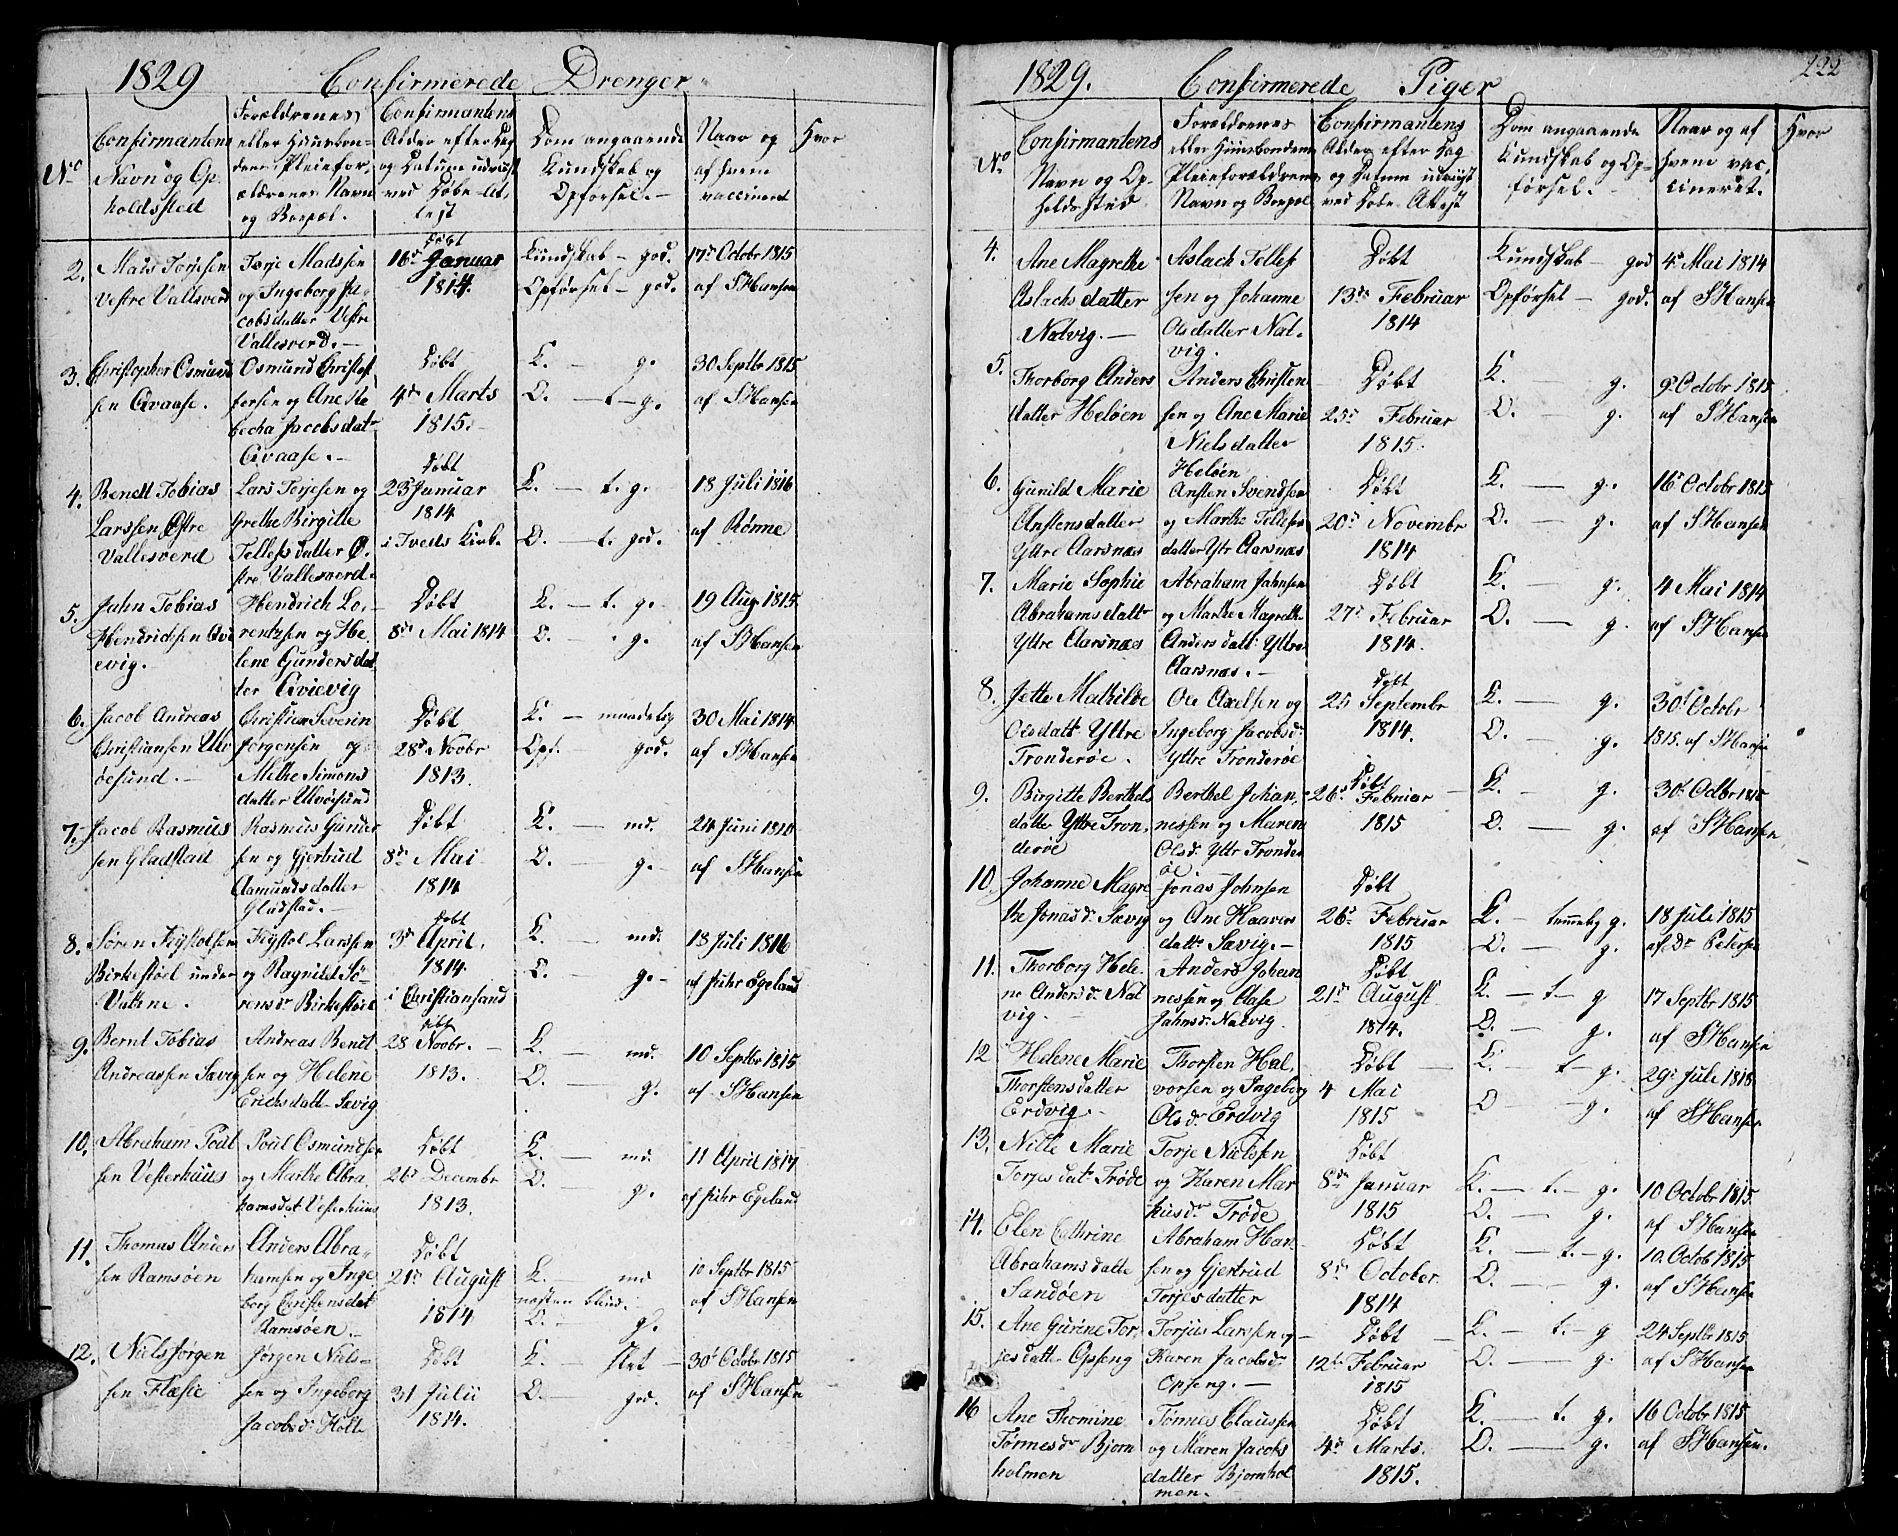 1829 Confirmerede Drenger
No
Confirmantens
Navn og Op-
holdssted
Forældrenes
eller Huusbon-
dens Pleiefor-
ældrenes Navn
og Boepæl.
Confirmantens
Alder efter Dag
og Datum udviist
ved Døbe-At-
test
Dom angaaende
Kundskab og
Opførsel.
Naar og
af hvem
vaccineret
Hvor
2.
Mads Torjesen
Vestre Vallesverd
Torje Madssen
og Ingeborg Ja-
cobsdatter Vestre
Vallesverd.
Døbt
16de Januar
1814.
Kundskab - god.
Opførsel - god.
17de Octobr 1815
af S Hansen
3.
Christopher Osmund
sen Qvaase.
Osmund Christof
fersen og Ane Re
becha Jacobsdatr
Qvaase.
Døbt
4de Marts
1815.
K. - g.
O. - t - g.
30 Septbr 1815
af S Hansen
4.
Bendt Tobias
Larssen Østre
Vallesverd
Lars Torjesen og
Grethe Birgitte
Tellefsdatter Ø-
stre Vallesverd.
Døbt
23 Januar
1814
i Tveds Kirke
K. - t. g.
O. - t. god.
18 Juli 1816
af Rønne
5.
Jahn Tobias
Hendrichsen Qvi
evig.
Hendrich Lo-
rentzsen og He-
lene Gundersdat
ter Qvievig
Døbt
8de Mai 1814
K. - t. g.
O. - g.
19 Aug 1815
af S Hansen
6.
Jacob Andreas
Christiansen Ulv
øesund.
Christian Severin
Jørgensen og
Methe Simons
datter Ulvøesund
Døbt
28de Novbr
1813
K. - maadelig
Opf. god.
30 Mai 1814
af S Hansen
7.
Jacob Rasmus
sen Gladstad
Rasmus Gunder
sen og Gjertrud
Aamundsdatter
Gladstad.
Døbt
8de Mai
1814
K. - md.
O. - g.
24 Juni 1810
af S Hansen
8.
Søren Fiystolsen
Birkestøel under
Vatne.
Fiystol Larssen
og Ragnild Sø-
rensdr Birkestøel
Døbt
3de April.
1814.
i Christiansand
K. - md.
O. - g.
18 Juli 1816
af Juhr Egeland
9.
Bernt Tobias
Andreassen Sævig
Andreas Bendt
sen og Helene
Erichsdattr Sævig
Døbt
28 Novbr.
1813.
K. - md.
O. - g.
10 Septbr 1815
af S Hansen
10.
Abraham Poul
sen Vesterhuus
Poul Osmundsen
og Marthe Abra
hamsdat Vesterhuus
Døbt
26de Decembr
1813.
K. - md.
O. - g.
11 April 1817
af Juhr Egeland
11.
Thomas Anders
sen Ramsøen
Anders Abra-
hamsen og Inge
borg Christensdat
Ramsøen.
Døbt
21de August
1814
K. - md
næsten blind.
O. - g.
10 Septbr 1815
af S Hansen
12.
Niels Jørgen
sen Flæsie
Jørgen Niels-
sen og Ingeborg
Jacobsdr Holte
Døbt
31 Julii
1814.
K. slet
O. - god.
30t Octobr 1815
af S Hansen
1829. Confirmerede Piger
222
No
Confirmantens
Navn og Op-
holdssted
Forældrenes
eller Huusbondens
Pleieforældrenes
Navn og Boepæl
Confirmantens
Alder efter Dag
og Datum udviist
ved Døbe-Attest
Dom angaaende
Kundskab og Op-
førsel.
Naar og af
hvem vac-
cineret.
Hvor
4.
Ane Magrethe
Aslachsdatter
Natvig.
Aslach Tellef
sen og Johanne
Olsdatter Nat-
vig.
Døbt
13de Februar
1814
Kundskab - god
Opførsel - god.
4de Mai 1814
af S Hansen
5.
Thorborg Anders
datter Heløen
Anders Christen
sen og Ane Marie
Nielsdatter
Heløen
Døbt
25de Februar
1815.
K. - g.
O. - g.
9de Octobr 1815
af S Hansen
6.
Gunild Marie
Anstensdatter
Yttre Aarsnæs
Ansten Svendsen
og Marthe Tellefs
datter Yttr Aarsnæs
Døbt
20de Novembr
1814
K. - g.
O. - g.
16de Octobr 1815
af S Hansen
7.
Marie Sophie
Abrahamsdattr
Yttre Aarsnæs
Abraham Jahnsen
og Marthe Magreth
Andersdatr Yttre
Aarsnæs.
Døbt
27de Februar
1814.
K. - g.
O. - g.
4 Mai 1814
af S Hansen
8.
Jette Mathilde
Olsdattr Yttre
Tronderøe.
Ole Axelsen og
Ingeborg Jacobsdr
Yttre Tronderøe
Døbt
25 Septembr
1814.
K. - g.
O. - g.
30t Octobr
1815. af S Hansen
9.
Birgitte Berthels
datter Yttre Tron-
derøe
Berthel Johan-
nessen og Maren
Olsdr Yttr Tronder
øe
Døbt
26de Februar
1815
K. - g.
O. - g.
30t Octbr 1815
af S Hansen
10.
Johanne Magre
the Jonasdr Sævig
Jonas Johnsen
og Ane Haavers
dattr Sævig.
Døbt
26de Februar
1815
K. - temmelig g.
O. - g.
18 Juli 1815
af Dr Petersen
11.
Thorborg Hele-
ne Andersdr Nat
vig.
Anders Johan
nessen og Aase
Jahnsdr Natvig.
Døbt
21de August
1814.
K. - t - g
O. - g.
17 Septbr 1815
af S Hansen
12
Helene Marie
Thorstensdatter
Erdvig.
Thorsten Hal-
vorsen og Ingeborg
Olsdr Erdvig
Døbt
4 Mai
1815
K. - t - g.
O - g.
29de Juli 1815
af S Hansen
13.
Nille Marie
Torjesdatr Trøde
Torje Nielsen
og Karen Mar
kusdr Trøde
Døbt
8de Januar
1815
K. - t. - g.
O. - g.
10 Octobr 1815
af S Hansen
14.
Elen Cathrine
Abrahamsdatter
Sandøen
Abraham Han-
sen og Gjertrud
Torjesdatter
Døbt
8de October
1814
K. - t. - g.
O. - g.
10. Octob 1815
af S Hansen
15.
Ane Gurine Tor-
jesdatter Opseng
Torjus Larssen og
Karen Jacobsdr
Opseng.
Døbt
12te Februar
1815
K. - t. - g
O. - g.
24 Septbr 1815
af S Hansen
16
Ane Thomine
Tørnesdr Bjørn
holmen
Tørnes Claussen
og Maren Jacobs
datter Bjørnhol
men.
Døbt
4de Marts.
1815.
K. - t. g.
O. - g.
16 Octobr 1815
af S Hansen.